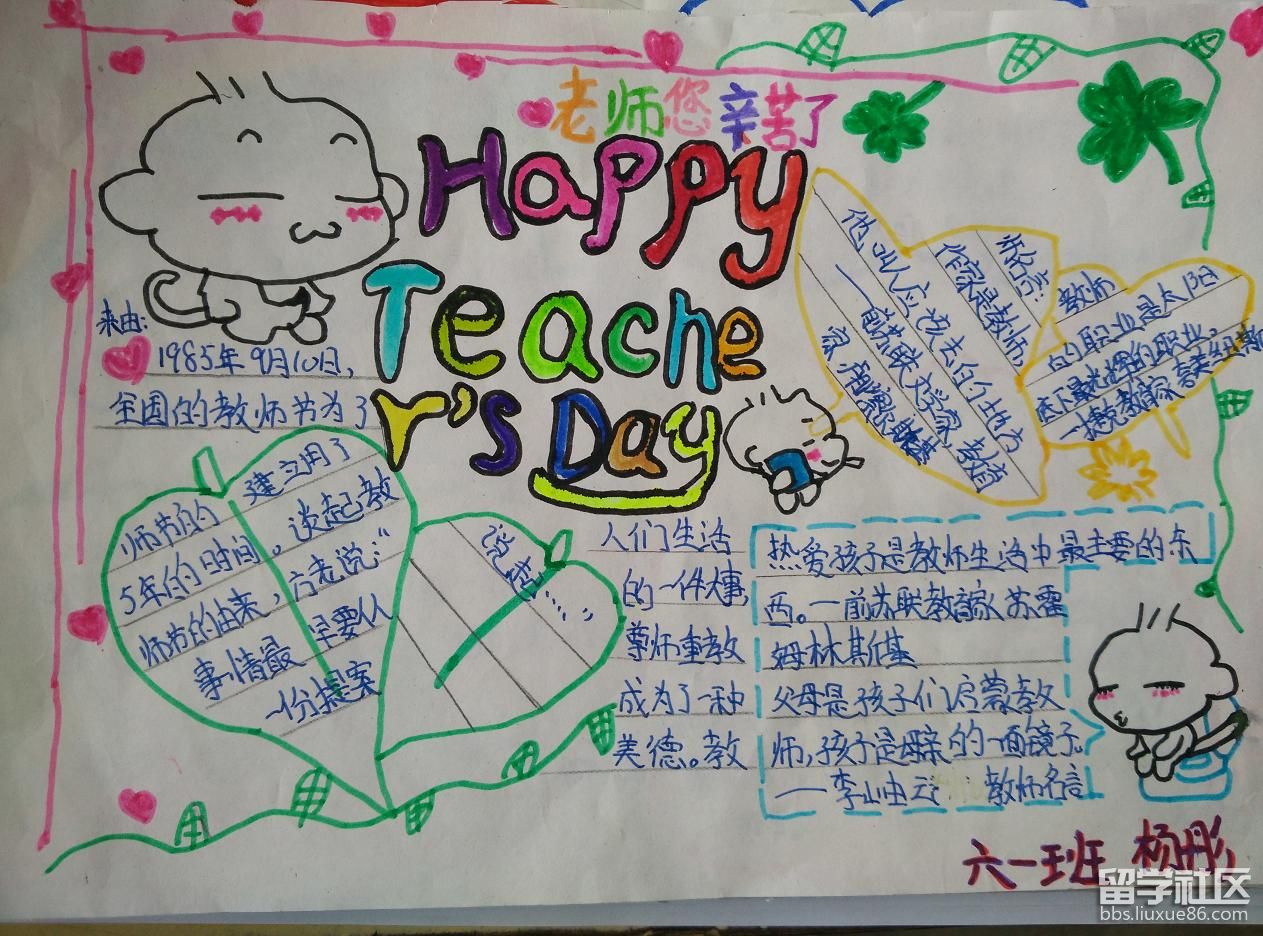 老师您辛苦了
Happy
Teache
r's Day
来由:
1985年9月10日,
全国的教师节为了
人们生活
的一件大事,
尊师重教
成为了一种
美德。教
师节的 建立用了
5年的时间, 谈起教
师节的由来, 方老说:“
事情最 早要从
一份提案
说起……”
师名言:
作家是教师,
他叫人应该去的地方
——前苏联文学家 教育
教师
的职业是太阳
底下最光辉的职业。
——捷克教育家 夸美纽斯
热爱孩子是教师生活中最主要的东
西。——前苏联教育家 苏霍
姆林斯基
父母是孩子们启蒙教
师,孩子是母亲的一面镜子.
——李山由云 教师名言
六一班 杨彤
留学社区
bbs.liuxue86.com